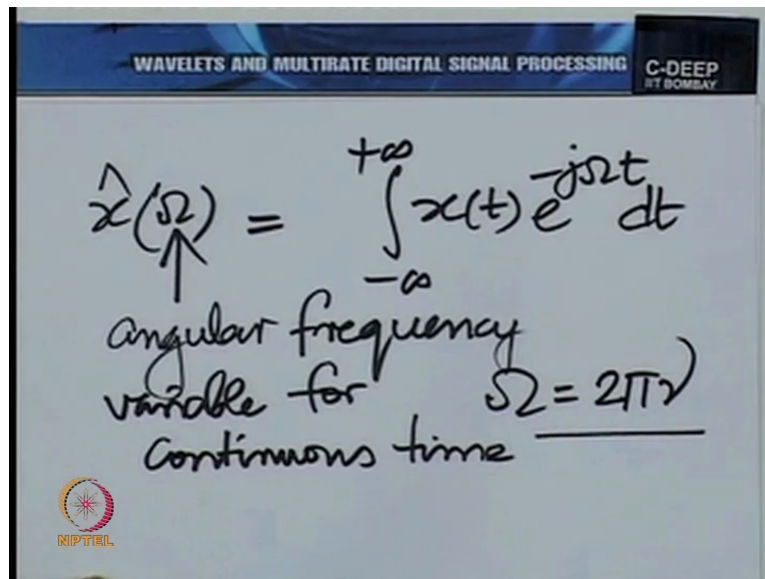 WAVELETS AND MULTIRATE DIGITAL SIGNAL PROCESSING
C-DEEP
IIT BOMBAY
x̂(Ω) = ∫_{-∞}^{+∞} x(t) e^{-jΩt} dt
angular frequency
variable for Ω = 2πν
continuous time
NPTEL